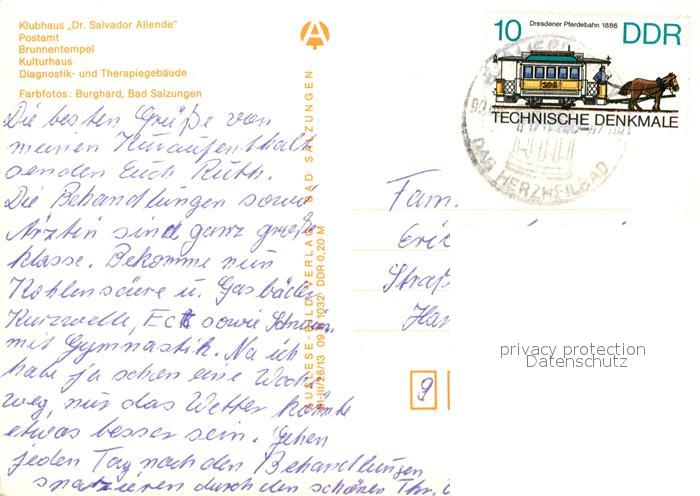 Klubhaus „Dr. Salvador Allende"
Postamt
Brunnentempel
Kulturhaus
Diagnostik- und Therapiegebäude
Farbfotos: Burghard, Bad Salzungen
Die besten Grüße von
meinen Kuraufenthalt
senden Euch Ruth.
Die Behandlungen sowie
Ärztin sind ganz große
Klasse. Bekomme nun
Kohlensäure u. Gasbäder
Kurzwelle, sowie
mit Gymnastik. Na ich
habe ja schon eine Woche
weg, nur das Wetter könnte
etwas besser sein. Gehen
jeden Tag nach den Behandlungen
spazieren durch den schönen Thr.
BILD-VERLAG BAD SALZUNGEN
III/26/13 1032 DDR 0,20 M
Dresdener Pferdebahn 1886
10 DDR
TECHNISCHE DENKMALE
DAS HERZHEILBAD
Fam.
Eric
Straß
Han
9
privacy protection
Datenschutz